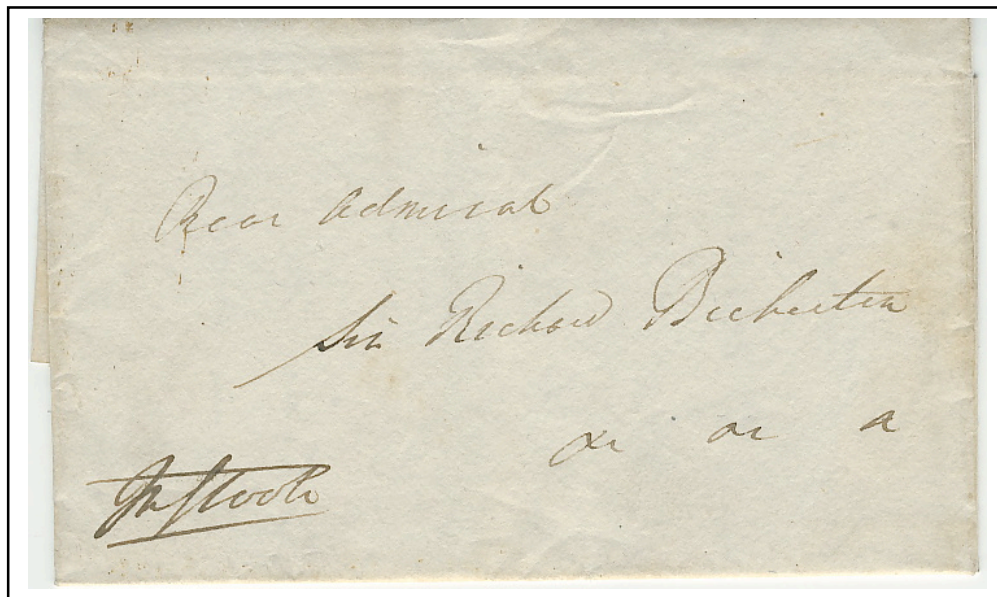 Rear Admiral
Sir Richard Bickerton
&c &c &